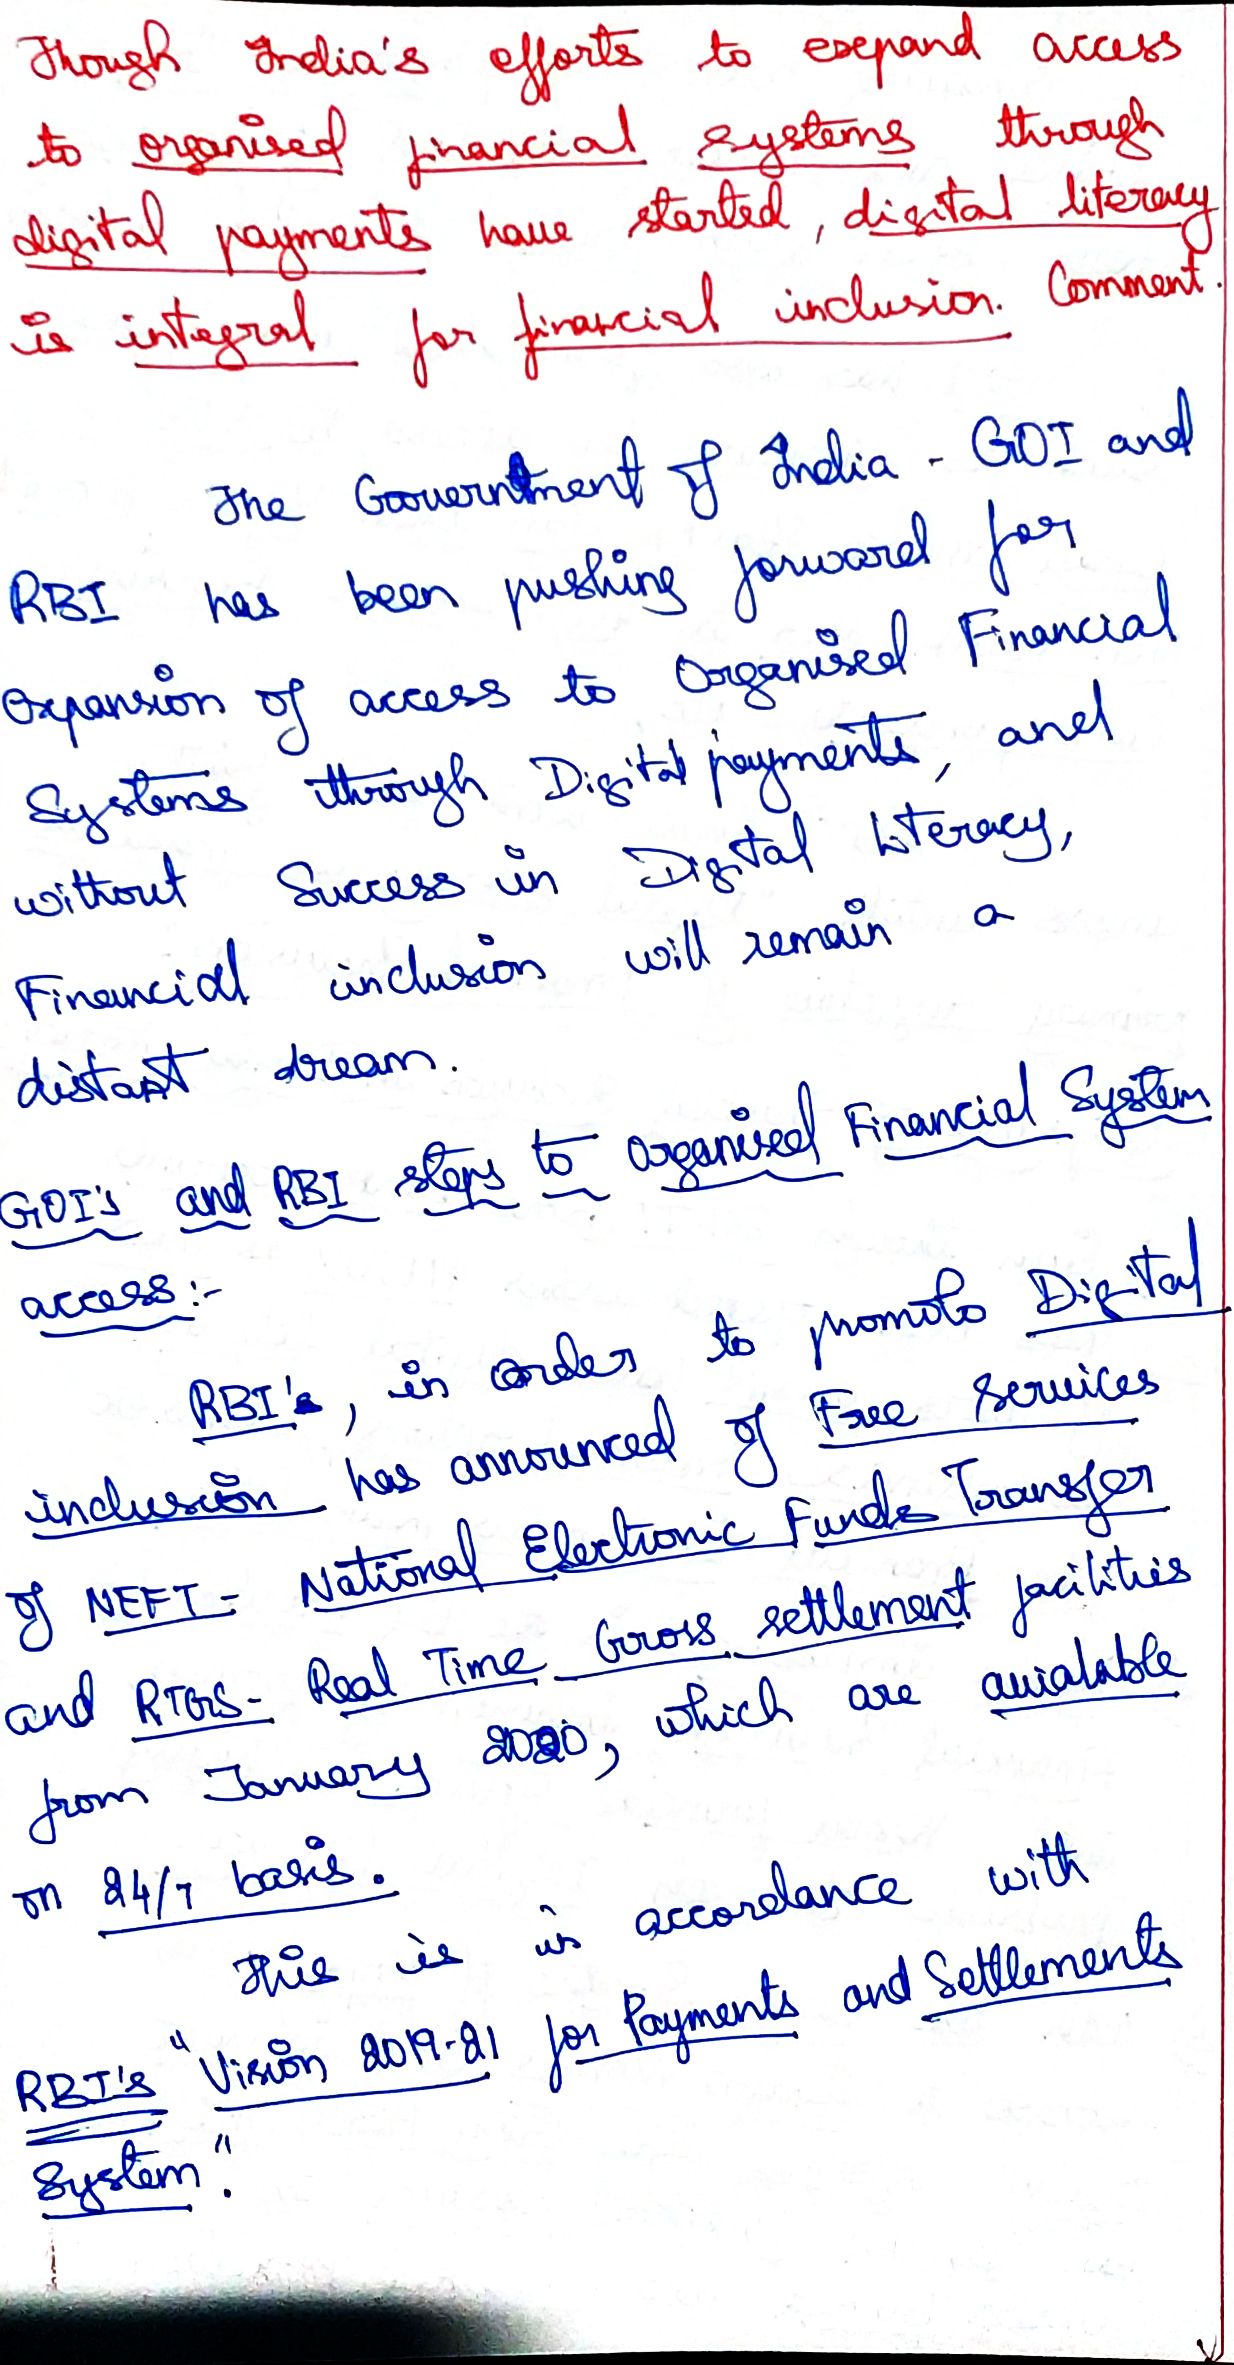 Though India's efforts to expand access
to organised financial systems through
digital payments have started, digital literacy
is integral for financial inclusion. Comment.
The Government of India - GOI and
RBI has been pushing forward for
Expansion of access to Organised Financial
Systems through Digital payments, and
without Success in Digital Literacy,
Financial inclusion will remain a
distant dream.
GOI's and RBI steps to Organised Financial System
access:-
RBI's, in order to promote Digital
inclusion has announced of Free Services
of NEFT- National Electronic Funds Transfer
and RTGS- Real Time Gross settlement facilities
from January 2020, which are avialable
on 24/7 basis.
This is in accordance with
RBI's "Vision 2019-21 for Payments and Settlements
System".